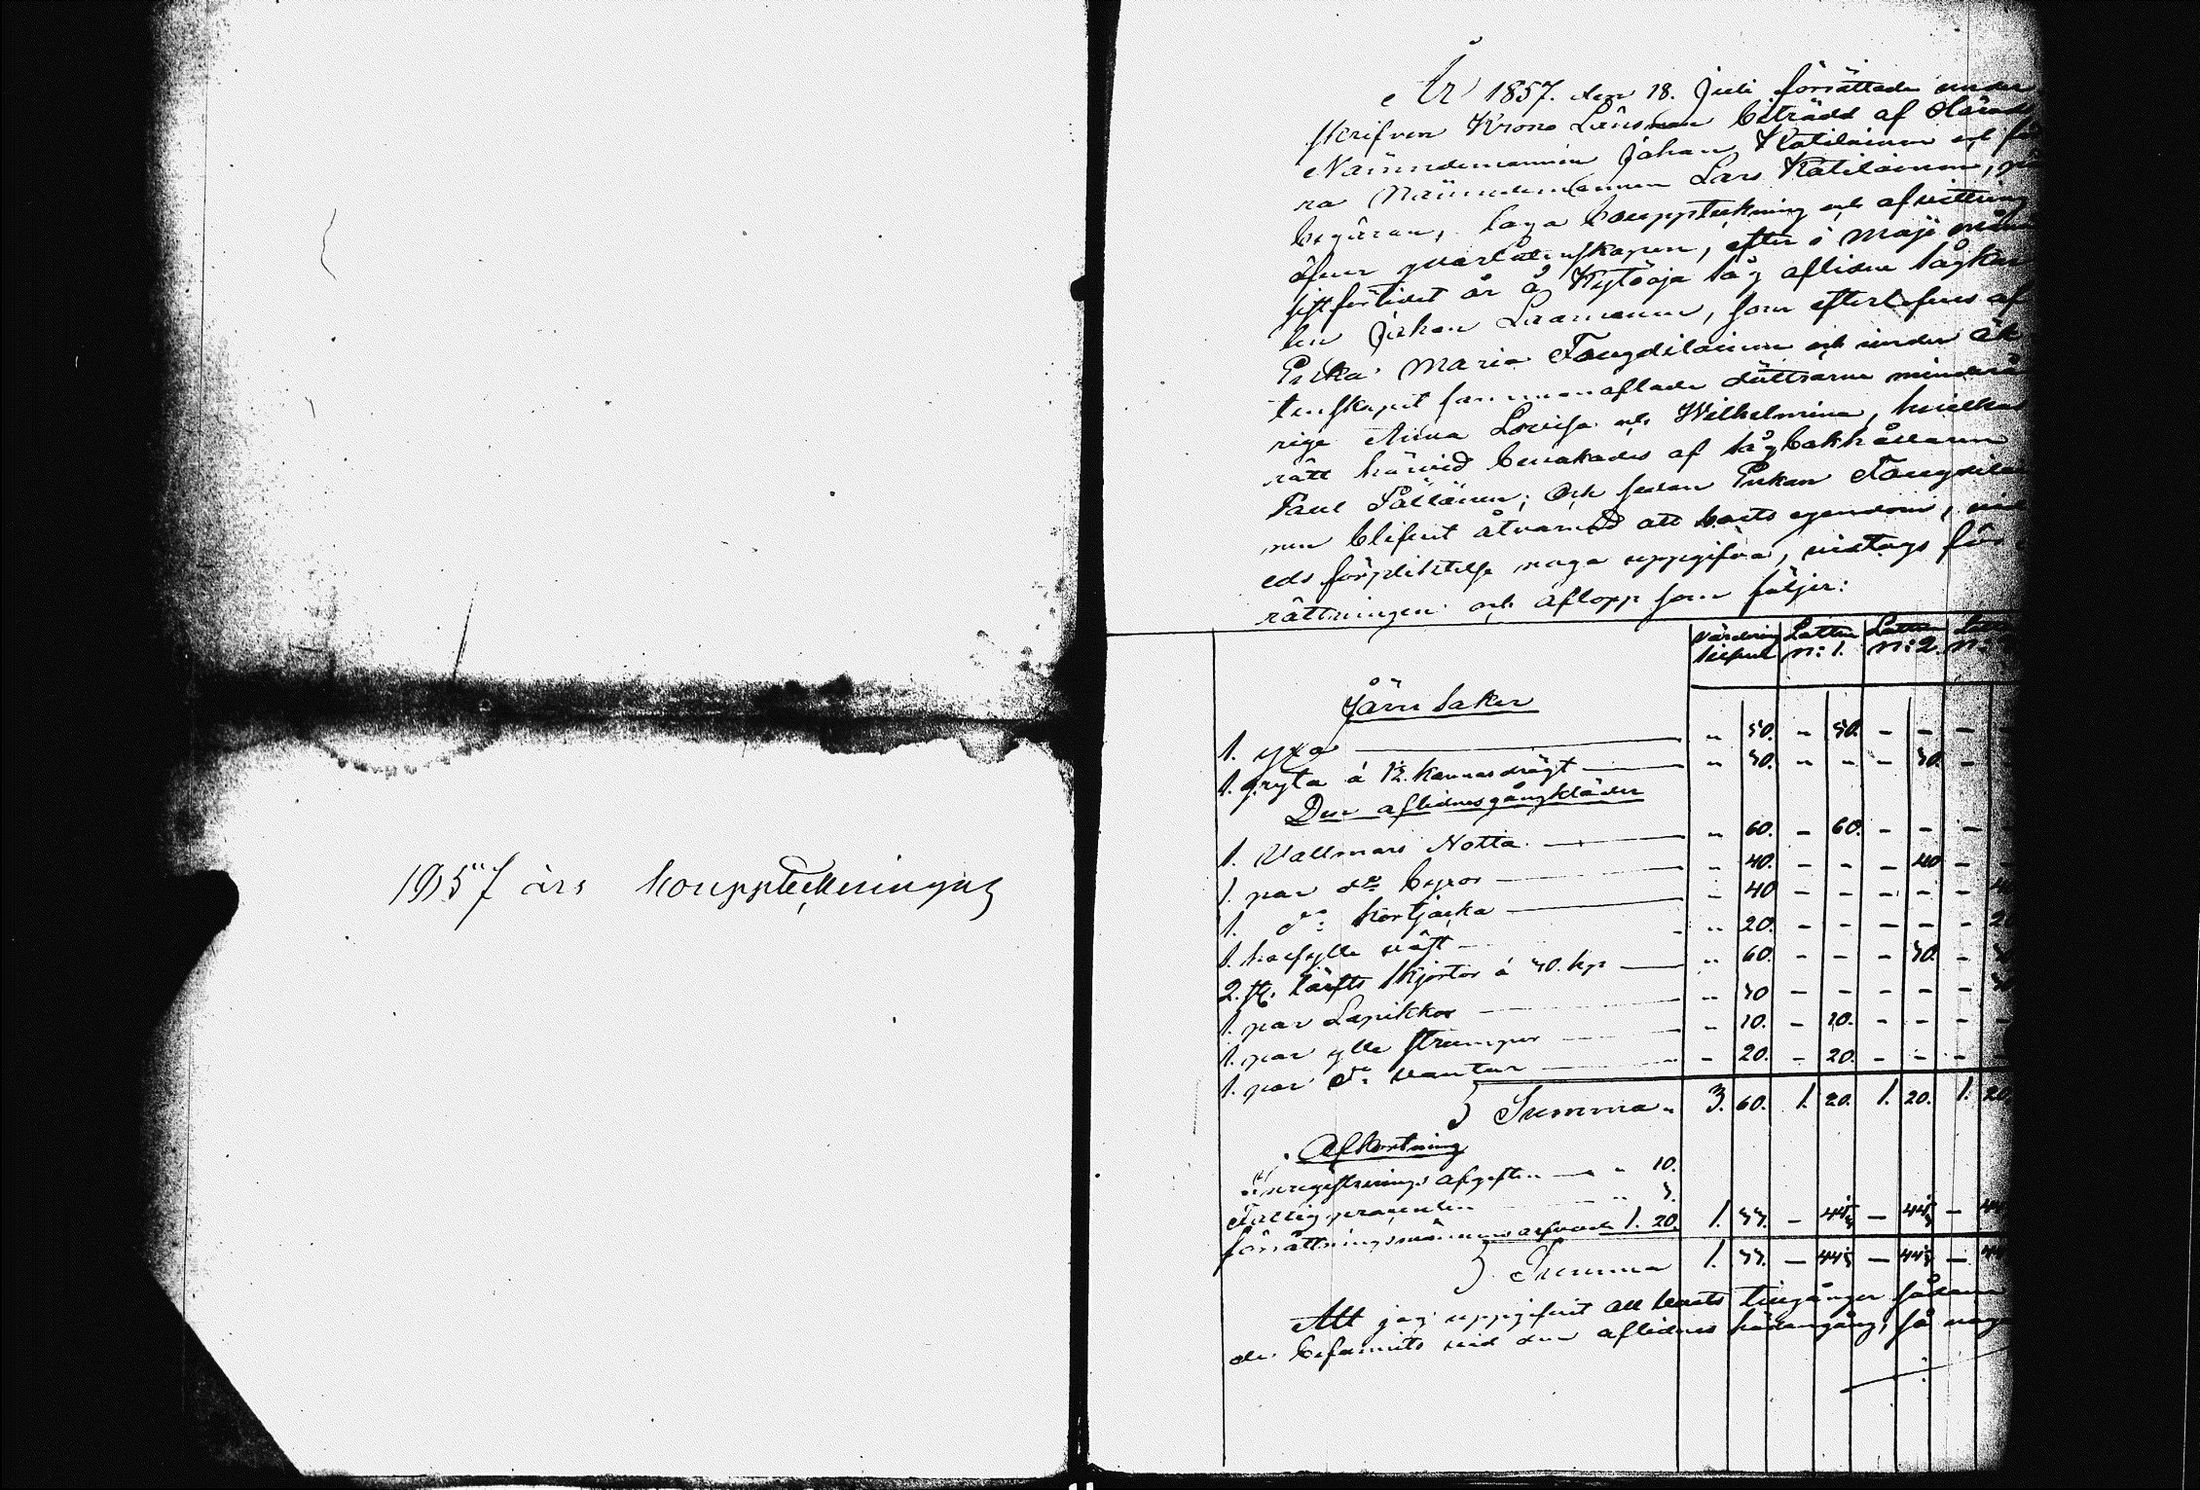 1857 års bouppteckningar
År 1857. den 18. Juli förrättade under
skrifven Krono Länsman biträdd af Härads
Nämndemannen Johan Katilainen och för
ra Nämndemannen Lars Katilainen, på
begäran, laga bouppteckning och afvittring
öfver qvarlåtenskapen, efter i Maji månad
sistförlidet år å Kytöoja låg aflidne lågkar
len Johan Laamanen, som efterlefves af
Enka Maria Tougdilainen och under äk
tenskapet sammanaflade döttrarne minderå
riga Anna Lovisa och Wilhelmina, hvilkas
rätt härvid bevakades af
Paul Pöllänen; Och sedan Enkan Tougdilai
nen blifvit åtvarnad att boets egendom, vid
eds förpliktelse noga uppgifva, vidtogs för
rättningen och aflopp som följer:
värdering Lotten Lotten
Silfver N: 1. N: 2. N:
Järn Saker
1. yxa — " 50. – 50. – – –
1. gryta à 12. kannas drägt — " 50. – – – 50. –
Den aflidnes gångkläder
1. Vallmars Notta — " 60. – 60. – – –
1. par do byxor — " 40. – – – 40 –
1. do kortjacka — " 40 – – – – –
1. half ylle väst — " 20. – – – – – 20
2. st. lärfts skjortor à 30. kp — " 60. – – – 30. –
1. par Lapikkor — " 30 – – – – –
1. par ylle strumpor — " 10. – 10. – – –
1. par do vantar — " 20. – 20. – – –
Summa " 3. 60. 1. 20. 1. 20. 1. 20
Afkortning
registrerings afgiften — " 10.
Fattigprocenten " 3.
förrättningsmännens arfvode 1. 20.
Summa
Att jag uppgifvit all boets tillgångar sådane
de befunnits vid den aflidnes frånngång, så noga